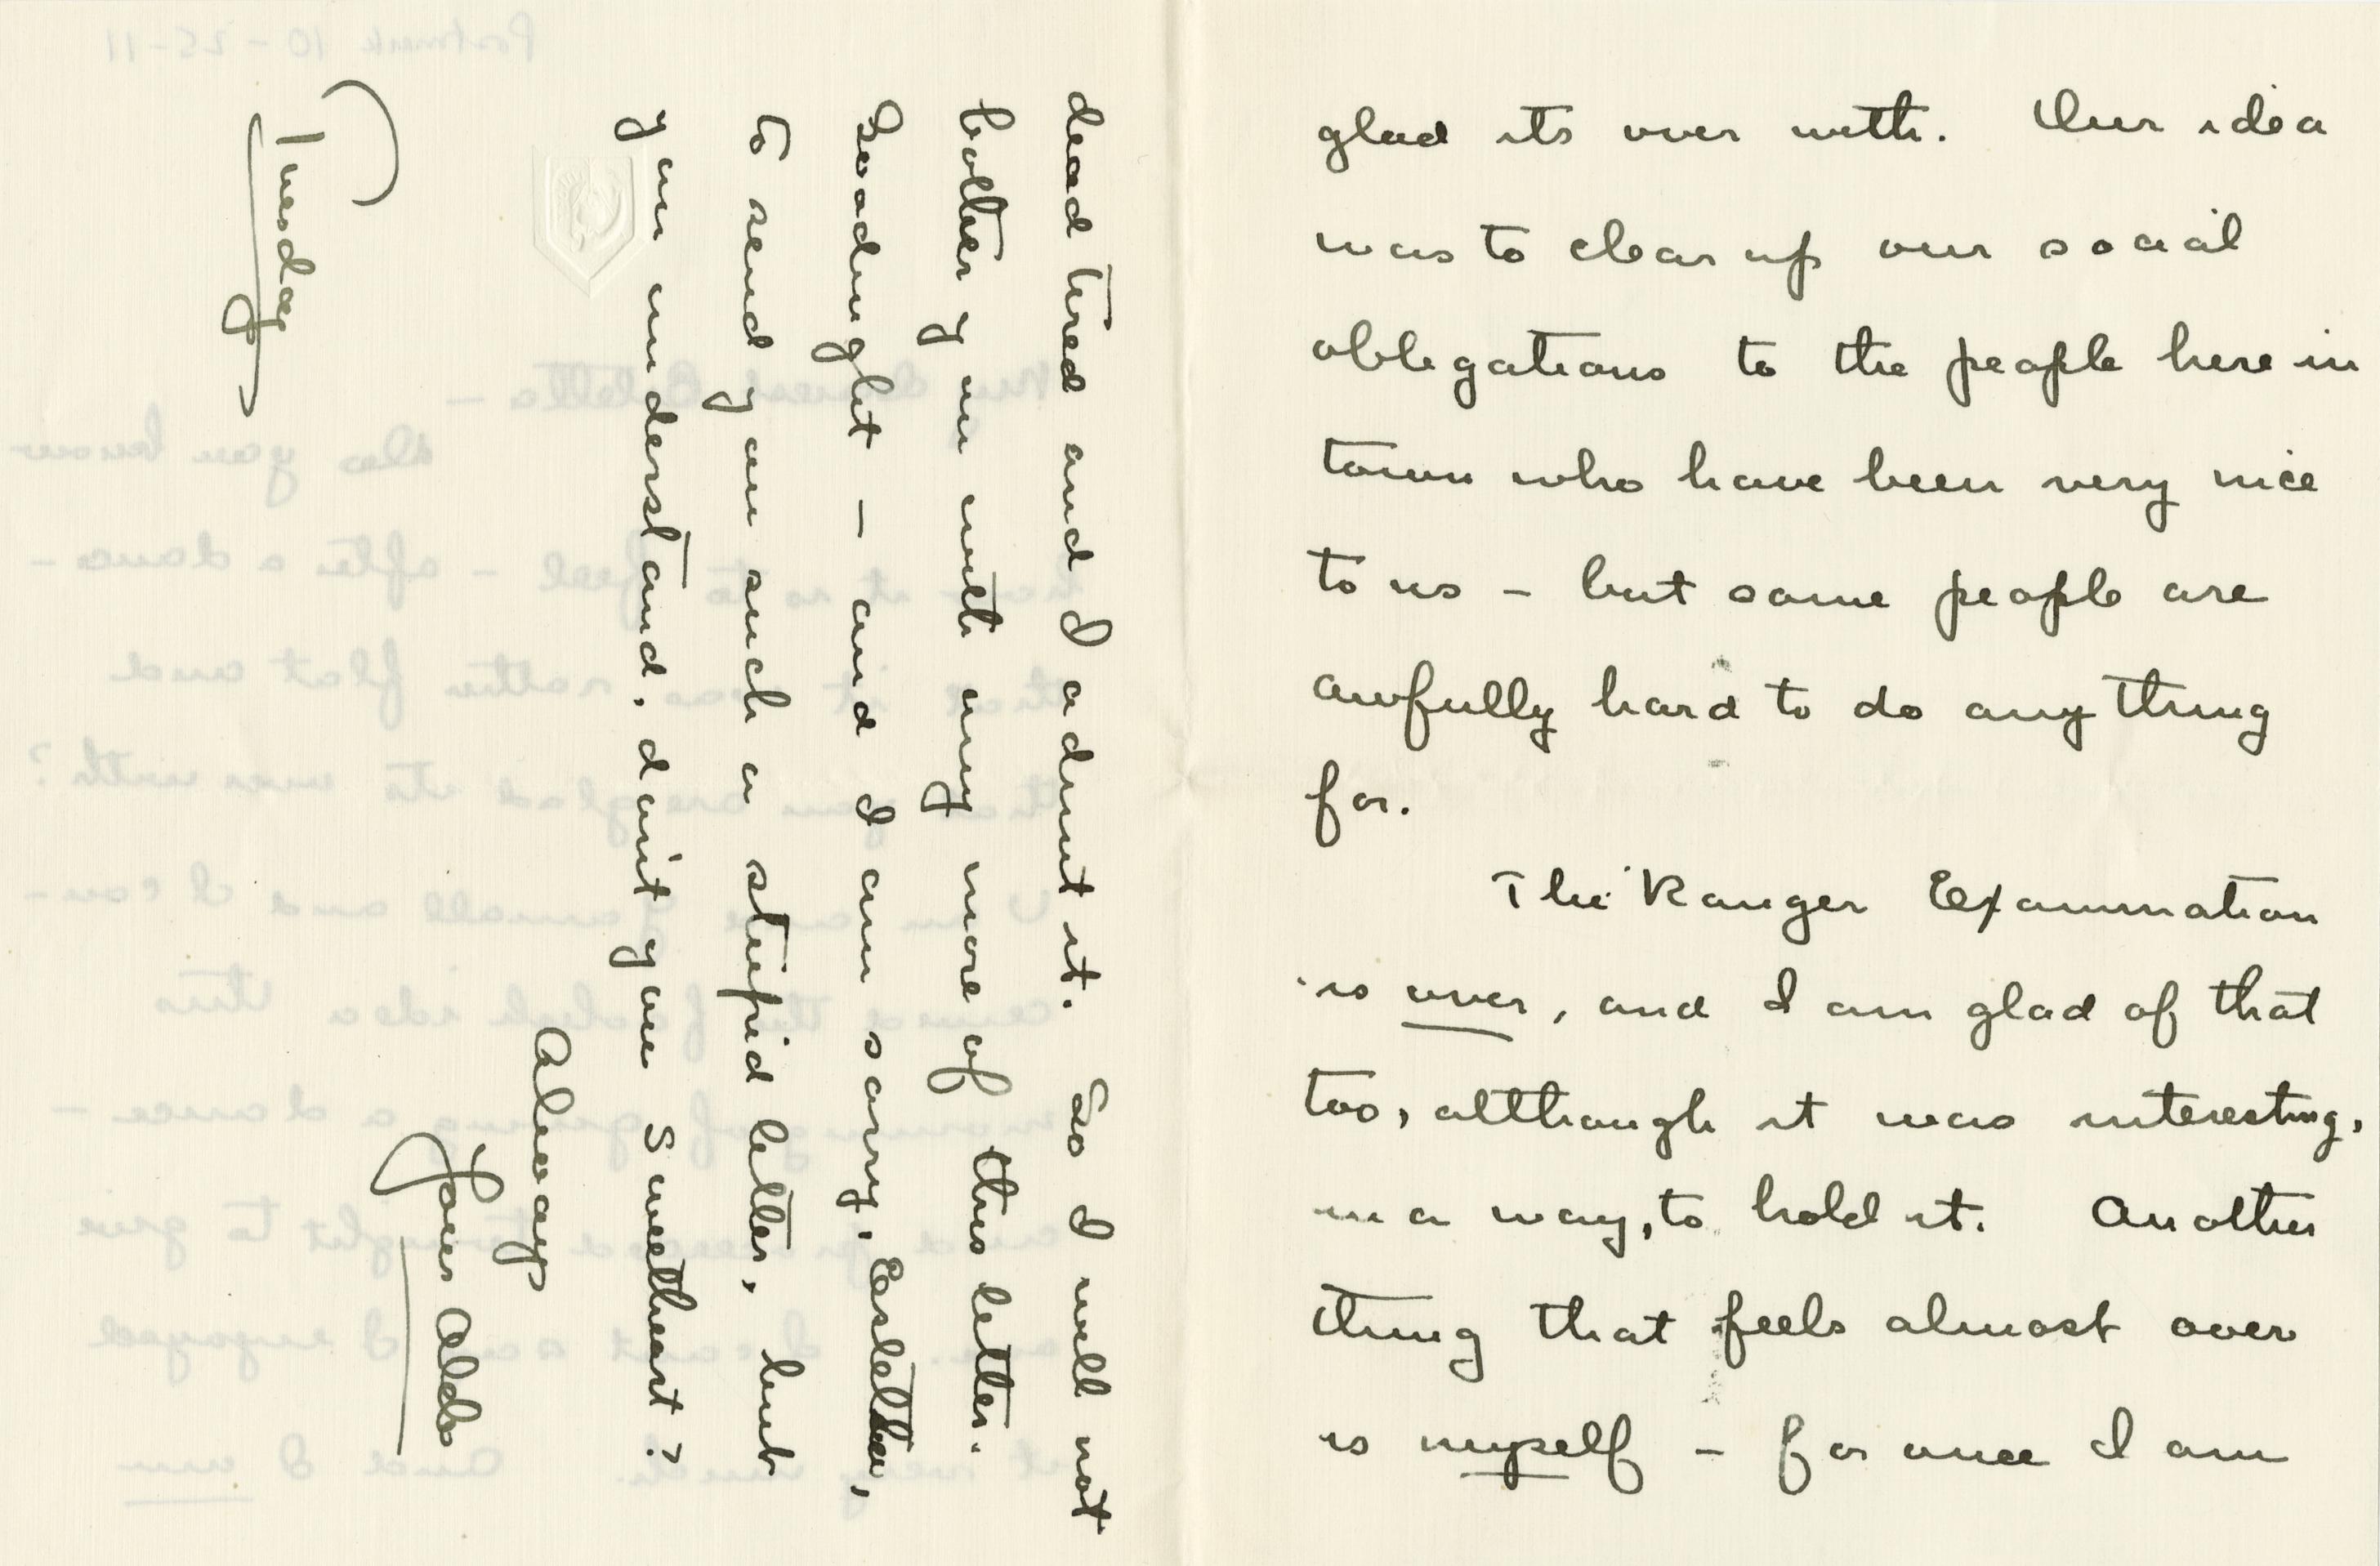 glad its over with. Our idea
was to clear up our social
obligations to the people here in
town who have been very nice
to us – but some people are
awfully hard to do anything
for.
The Ranger Examination
is over, and I am glad of that
too, although it was interesting,
in a way, to hold it. Another
thing that feels almost over
is myself – for once I am
dead tired and I admit it. So I will not
bother you with any more of this letter.
Goodnight – and I am sorry, Estella,
to send you such a stupid letter, but
you understand, don't you Sweetheart?
Always
Your Aldo
Tuesday